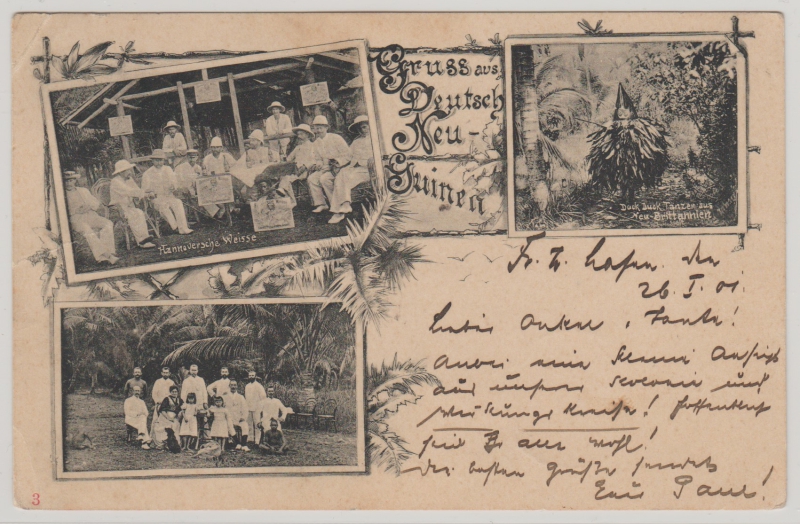 Gruss aus
Deutsch
Neu-
Guinea
Hannoversche Weisse
Duck Duck Tanzer aus
Neu-Brittannien
Fr. W. Hafen den
26. I. 01.
Liebe Onkel u. Tante!
Anbei eine kleine Ansicht
aus unserer und
Wirkungskreise! Hoffentlich
seid Ihr alle wohl!
Die besten Grüße sendet
Euer Paul!
3